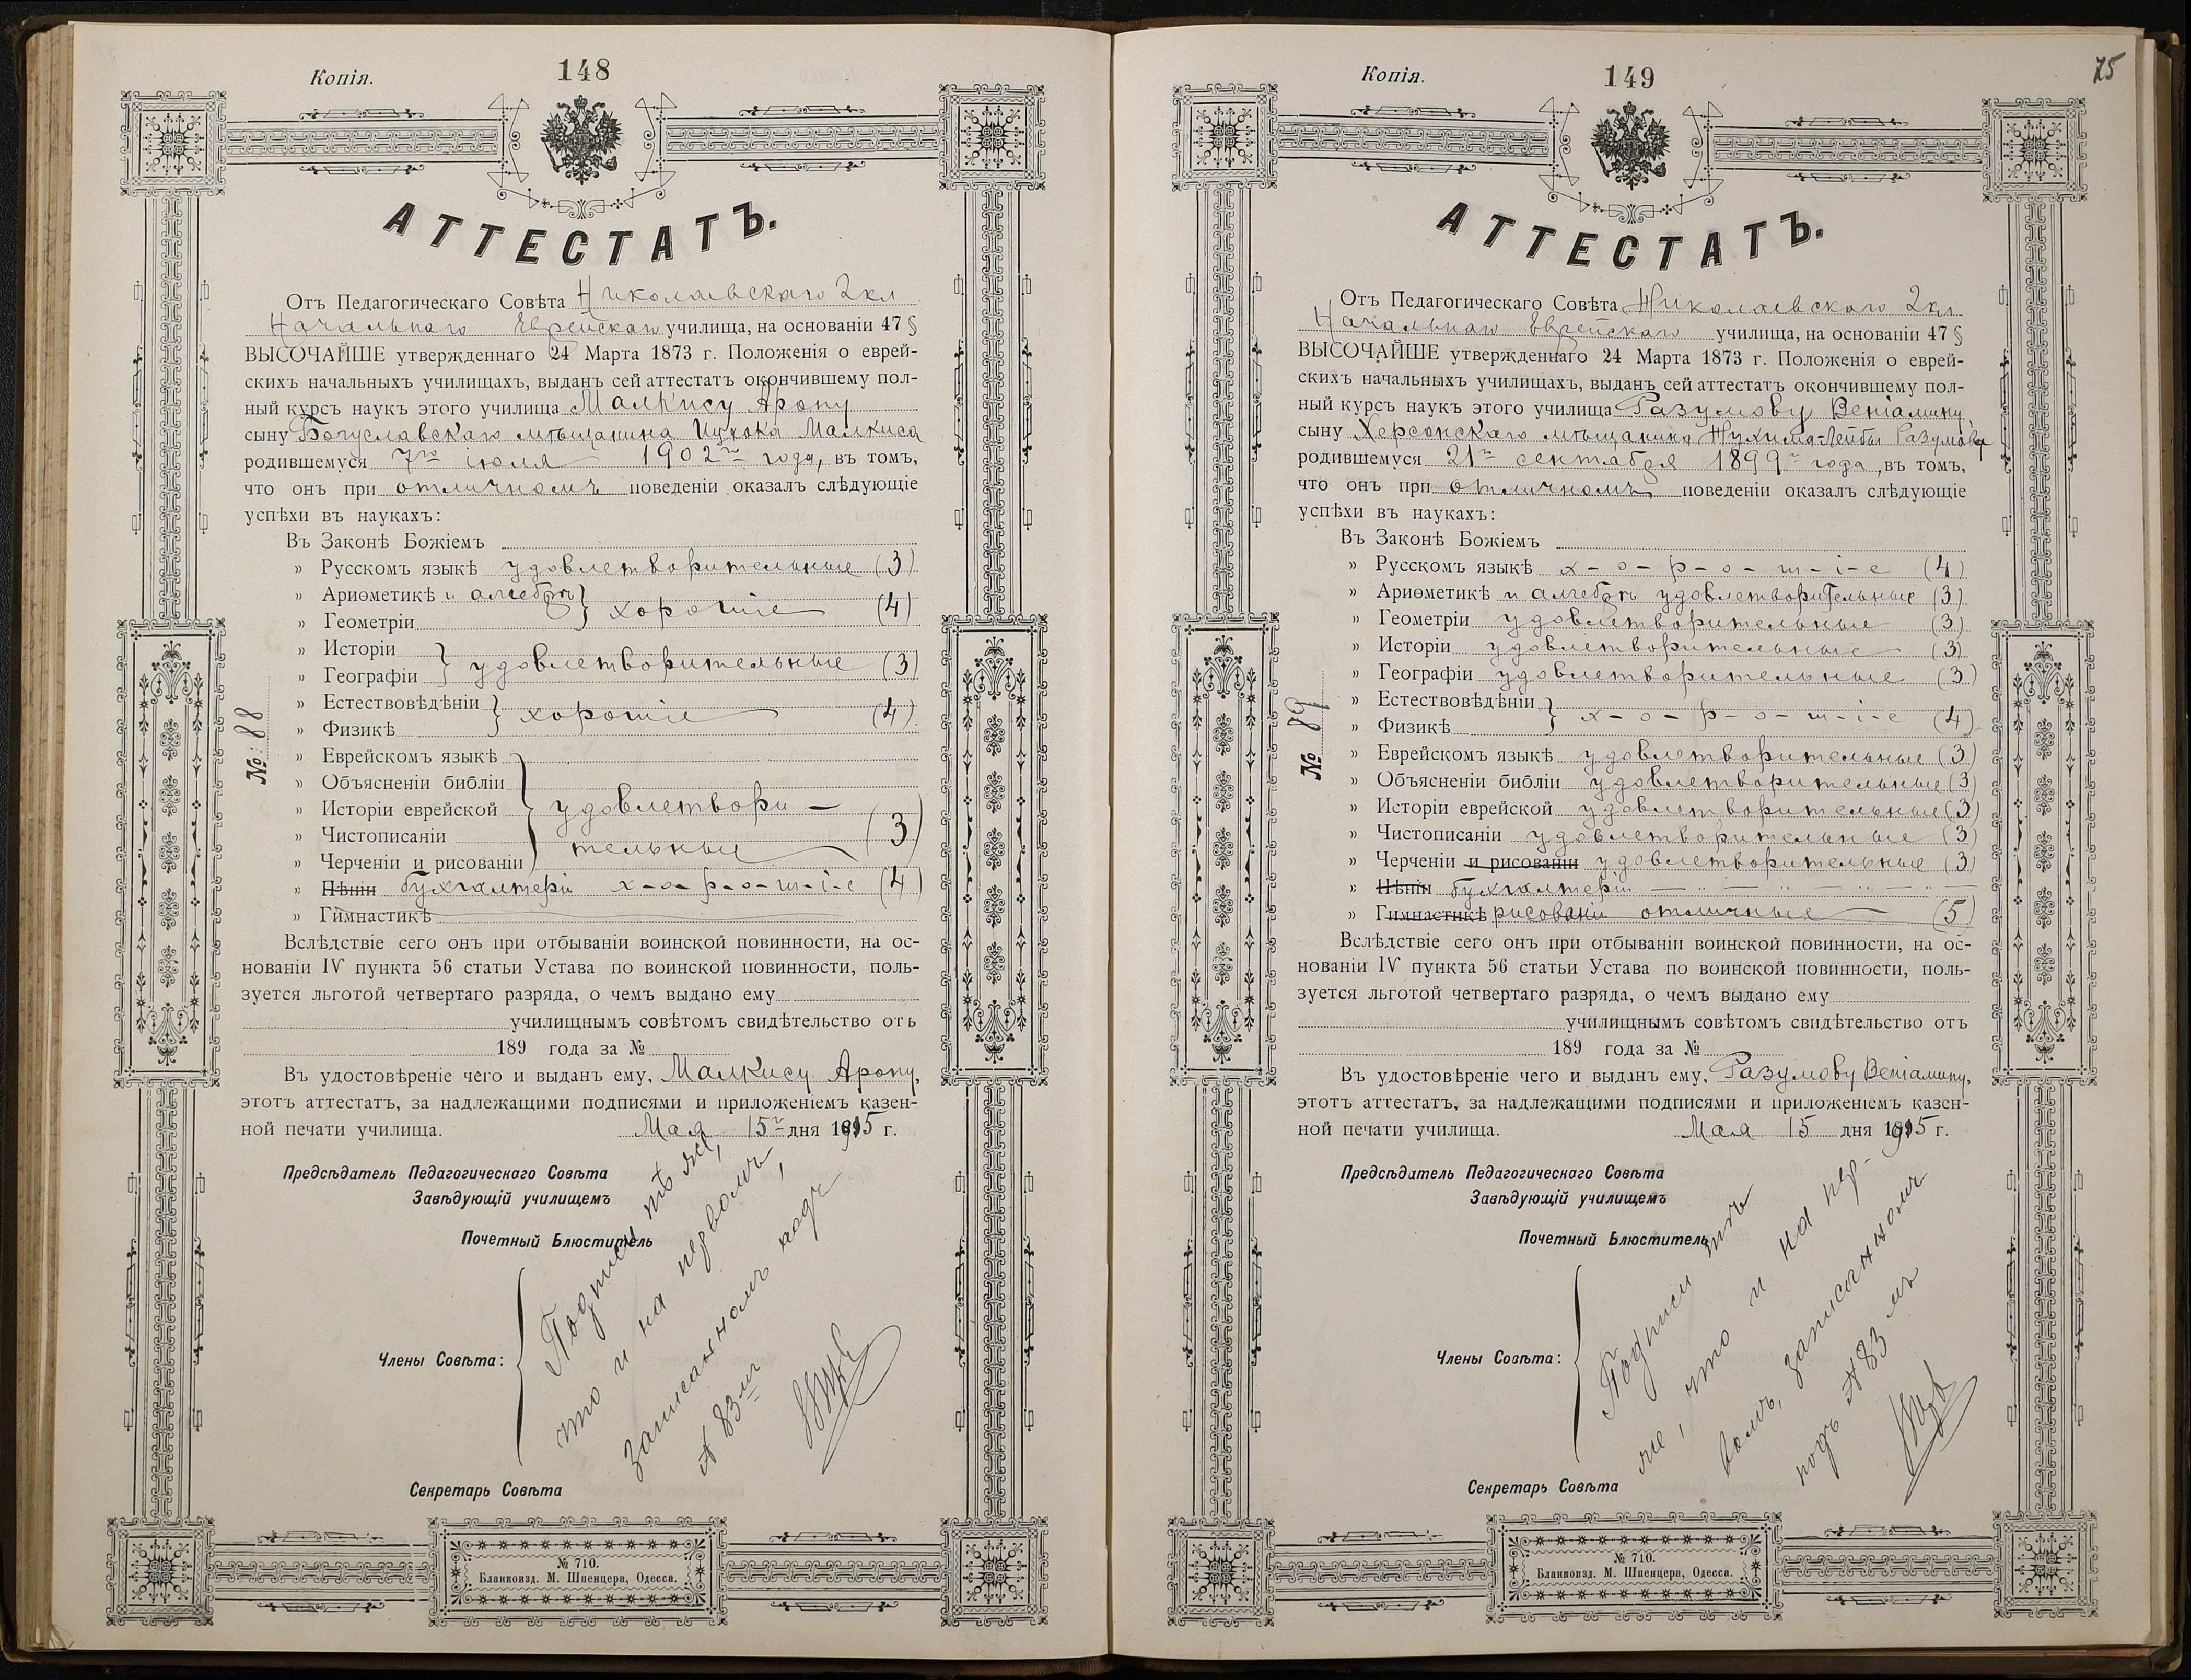 Копія.
148
АТТЕСТАТЪ.
Отъ Педагогическаго Совѣта Николаевскаго 2кл
Начальнаго Еврейскаго училища, на основаніи 47 §
ВЫСОЧАЙШЕ утвержденнаго 24 Марта 1873 г. Положенія о еврей-
скихъ начальныхъ училищахъ, выданъ сей аттестатъ окончившему пол-
ный курсъ наукъ этого училища Малкису Арону
сыну Богуславскаго мѣщанина Ицхока Малкиса
родившемуся 7го іюля 1902го года, въ томъ,
что онъ при отличномъ поведеніи оказалъ слѣдующіе
успѣхи въ наукахъ:
Въ Законѣ Божіемъ
» Русскомъ языкѣ удовлетворительные (3)
» Ариѳметикѣ и алгебрѣ } хорошіе (4)
» Геометріи
» Исторіи } удовлетворительные (3)
» Географіи
» Естествовѣдѣніи } хорошіе (4)
» Физикѣ
№ 88
» Еврейскомъ языкѣ
» Объясненіи библіи
» Исторіи еврейской } удовлетвори-
» Чистописаніи тельные (3)
» Черченіи и рисованіи
» Пѣніи бухгалтеріи х-о-р-о-ш-і-е (4)
» Гимнастикѣ
Вслѣдствіе сего онъ при отбываніи воинской повинности, на ос-
нованіи IV пункта 56 статьи Устава по воинской повинности, поль-
зуется льготой четвертаго разряда, о чемъ выдано ему
училищнымъ совѣтомъ свидѣтельство отъ
189 года за №
Въ удостовѣреніе чего и выданъ ему, Малкису Арону,
этотъ аттестатъ, за надлежащими подписями и приложеніемъ казен-
ной печати училища. Мая 15го дня 1915 г.
Предсѣдатель Педагогическаго Совѣта
Завѣдующій училищемъ
Почетный Блюститель
Члены Совѣта:
Подписи тѣ же,
что и на первомъ,
записанномъ подъ
№ 83мъ
Секретарь Совѣта
№ 710.
Бланкоизд. М. Шпенцера, Одесса.
Копія.
149
75
АТТЕСТАТЪ.
Отъ Педагогическаго Совѣта Николаевскаго 2кл
Начальнаго Еврейскаго училища, на основаніи 47 §
ВЫСОЧАЙШЕ утвержденнаго 24 Марта 1873 г. Положенія о еврей-
скихъ начальныхъ училищахъ, выданъ сей аттестатъ окончившему пол-
ный курсъ наукъ этого училища Разумову Веніамину
сыну Херсонскаго мѣщанина Нухима-Лейбы Разумова
родившемуся 21го сентября 1899го года, въ томъ,
что онъ при отличномъ поведеніи оказалъ слѣдующіе
успѣхи въ наукахъ:
Въ Законѣ Божіемъ
» Русскомъ языкѣ х-о-р-о-ш-і-е (4)
» Ариѳметикѣ и алгебрѣ удовлетворительные (3)
» Геометріи удовлетворительные (3)
» Исторіи удовлетворительные (3)
» Географіи удовлетворительные (3)
» Естествовѣдѣніи } х-о-р-о-ш-і-е (4)
» Физикѣ
№ 89
» Еврейскомъ языкѣ удовлетворительные (3)
» Объясненіи библіи удовлетворительные (3)
» Исторіи еврейской удовлетворительные (3)
» Чистописаніи удовлетворительные (3)
» Черченіи и рисованіи удовлетворительные (3)
» Пѣніи бухгалтеріи — " — " — " —
» Гимнастикѣ рисованіи отличные (5)
Вслѣдствіе сего онъ при отбываніи воинской повинности, на ос-
нованіи IV пункта 56 статьи Устава по воинской повинности, поль-
зуется льготой четвертаго разряда, о чемъ выдано ему
училищнымъ совѣтомъ свидѣтельство отъ
189 года за №
Въ удостовѣреніе чего и выданъ ему, Разумову Веніамину,
этотъ аттестатъ, за надлежащими подписями и приложеніемъ казен-
ной печати училища. Мая 15 дня 1915 г.
Предсѣдатель Педагогическаго Совѣта
Завѣдующій училищемъ
Почетный Блюститель
Члены Совѣта:
Подписи тѣ
же, что и на пер-
вомъ, записанномъ
подъ № 83 мъ
Секретарь Совѣта
№ 710.
Бланкоизд. М. Шпенцера, Одесса.